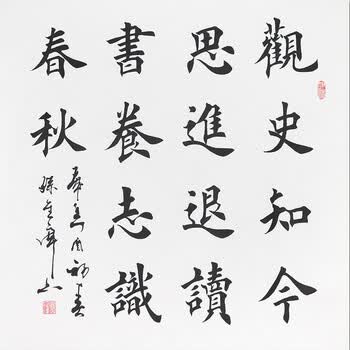 觀史知今
思進退讀
書養志識
春秋